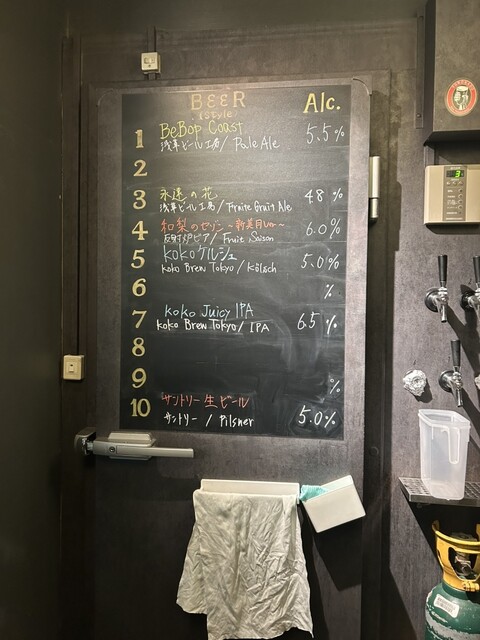 BEER Alc.
&Style
1 BeBop Coast 5.5%
浅草ビール工房/Pale Ale
2
3 永遠の花 4.8%
浅草ビール工房/Fruite Gruit Ale
4 和梨のセゾン 6.0%
反射炉ビア/Fruit Saison
5 KOKOケルシュ 5.0%
koko Brew Tokyo/Kölsch
6 %
7 koko Juicy IPA 6.5%
koko Brew Tokyo/IPA
8
9 %
10 サントリー生ビール 5.0%
サントリー / Pilsner
3